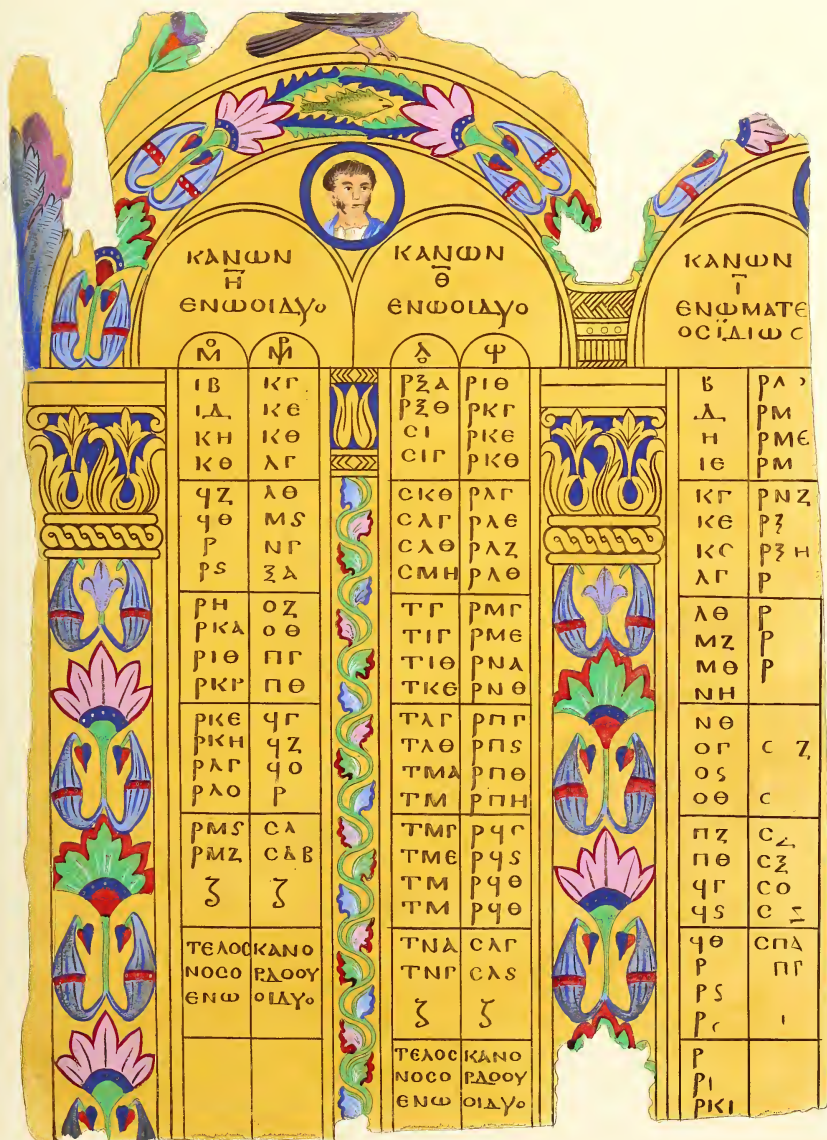 ΚΑΝΩΝ
Η̅
ΕΝΩΟΙΔΥΟ
ΙΒ ΚΓ
ΙΔ ΚΕ
ΚΗ ΚΘ
ΚΘ ΛΓ
ϤΖ ΛΘ
ϤΘ ΜϚ
Ρ ΝΓ
ΡϚ ΞΑ
ΡΗ ΟΖ
ΡΚΑ ΟΘ
ΡΙΘ ΠΓ
ΡΚΡ ΠΘ
ΡΚΕ ϤΓ
ΡΚΗ ϤΖ
ΡΛΓ ϤΟ
ΡΛΟ Ρ
ΡΜϚ ϹΛ
ΡΜΖ ϹΔΒ
ΤΕΛΟϹ ΚΑΝΟ
ΝΟϹΟ ΡΔΟΟΥ
ΕΝΩ ΟΙΔΥΟ
ΚΑΝΩΝ
Θ̅
ΕΝΩΟΙΔΥΟ
ΡΞΑ ΡΙΘ
ΡΞΘ ΡΚΓ
ϹΙ ΡΚΕ
ϹΙΓ ΡΚΘ
ϹΚΘ ΡΛΓ
ϹΛΓ ΡΛΕ
ϹΛΘ ΡΛΖ
ϹΜΗ ΡΛΘ
ΤΓ ΡΜΓ
ΤΙΓ ΡΜΕ
ΤΙΘ ΡΝΑ
ΤΚΕ ΡΝΘ
ΤΛΓ ΡΠΓ
ΤΛΘ ΡΠϚ
ΤΜΑ ΡΠΘ
ΤΜ ΡΠΗ
ΤΜΓ ΡϤΓ
ΤΜΕ ΡϤϚ
ΤΜ ΡϤΘ
ΤΜ ΡϤΘ
ΤΝΑ ϹΛΓ
ΤΝΓ ϹΛϚ
ΤΕΛΟϹ ΚΑΝΟ
ΝΟϹΟ ΡΔΟΟΥ
ΕΝΩ ΟΙΔΥΟ
ΚΑΝΩΝ
Ι̅
ΕΝΩΜΑΤΕ
ΟϹΙΔΙΩϹ
Β ΡΛ
Δ ΡΜ
Η ΡΜΕ
ΙΕ ΡΜ
ΚΓ ΡΝΖ
ΚΕ ΡΞ
ΚϚ ΡΞΗ
ΛΓ Ρ
ΛΘ Ρ
ΜΖ Ρ
ΜΘ Ρ
ΝΗ
ΝΘ
ΟΓ Ϲ Ζ
ΟϚ
ΟΘ Ϲ
ΠΖ Ϲ
ΠΘ ϹΞ
ϤΓ ϹΟ
ϤϚ Ϲ
ϤΘ ϹΠΑ
Ρ ΠΓ
ΡϚ
Ρ Ι
Ρ
ΡΙ
ΡΚΙ